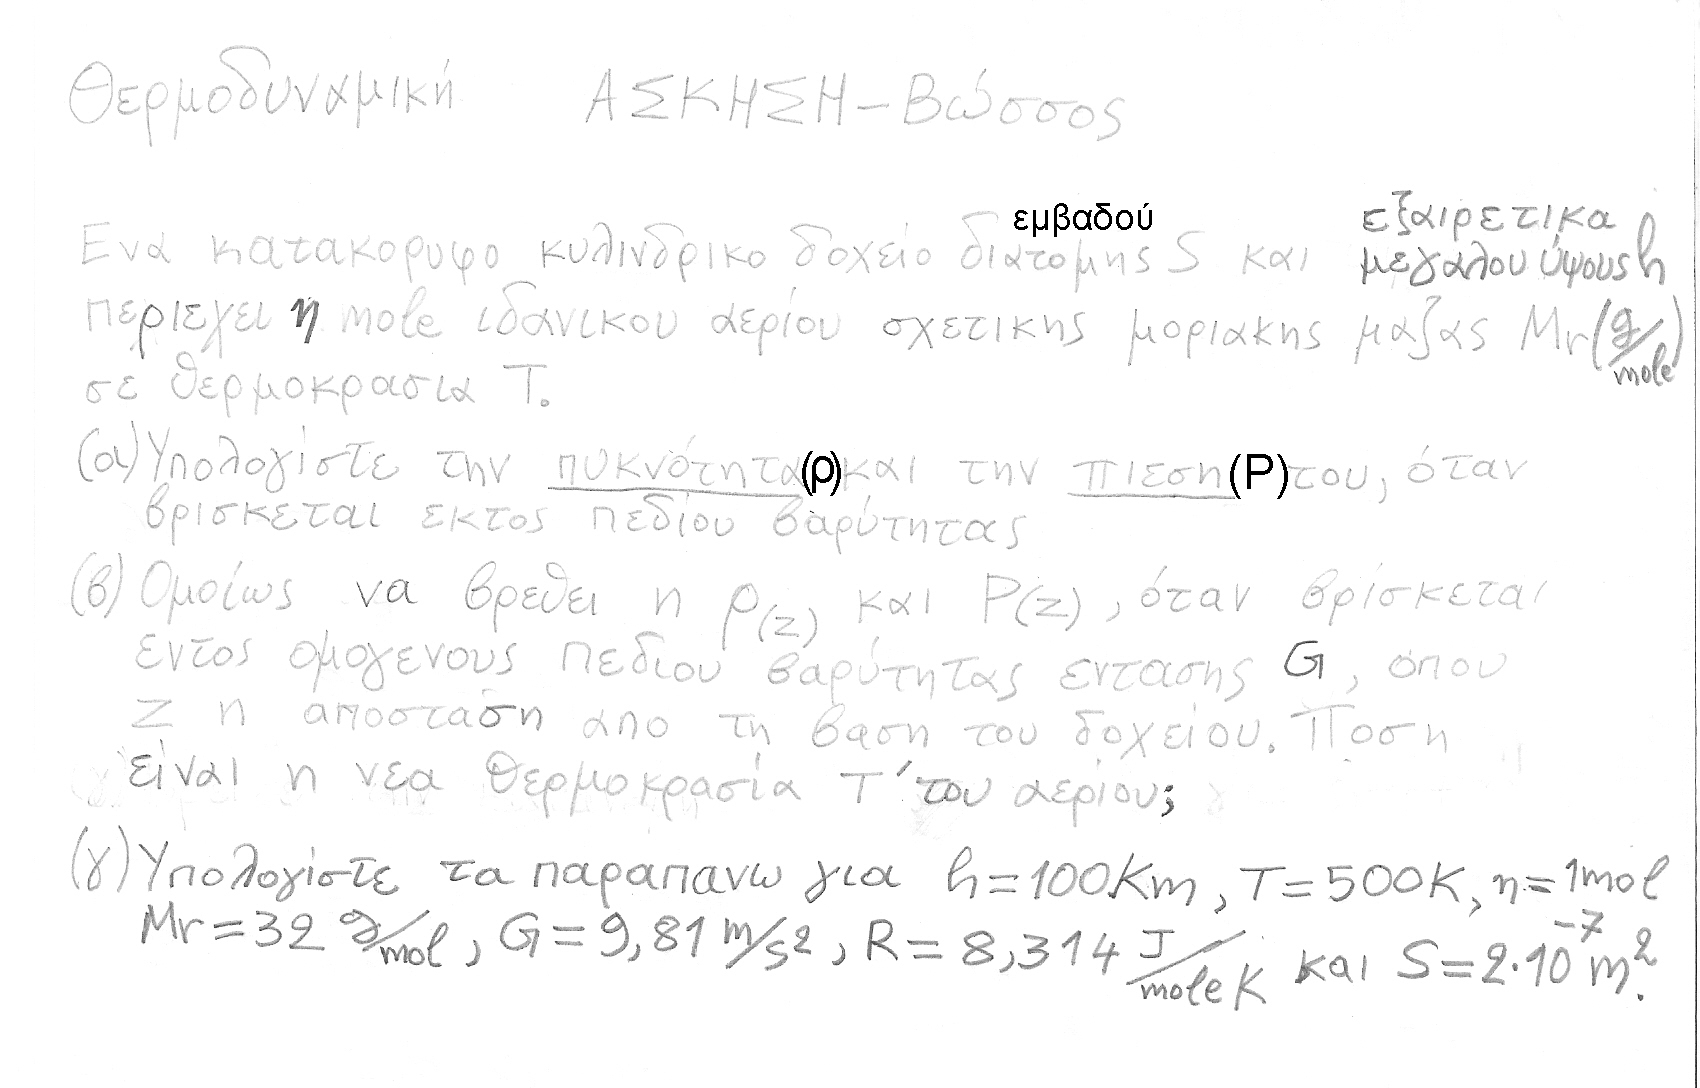 Θερμοδυναμική ΑΣΚΗΣΗ – Βώσσος
Ενα κατακορυφο κυλινδρικο δοχείο διατομης εμβαδού S και εξαιρετικα μεγαλου ύψους h
περιεχει η mole ιδανικου αερίου σχετικης μοριακης μαζας Mr (g/mole)
σε θερμοκρασια T.
(α) Υπολογίστε την πυκνότητα (ρ) και την πιεση (P) του, όταν
βρισκεται εκτος πεδίου βαρύτητας
(β) Ομοίως να βρεθει η ρ(z) και P(z), όταν βρίσκεται
εντος ομογενους πεδιου βαρύτητας εντασης G, οπου
z η αποσταση απο τη βαση του δοχείου. Ποση
είναι η νεα θερμοκρασία T' του αερίου;
(γ) Υπολογίστε τα παραπανω για h=100Km, T=500K, η=1mol
Mr=32 g/mol, G=9,81 m/s2, R=8,314 J/mole K και S=2·10^-7 m2.